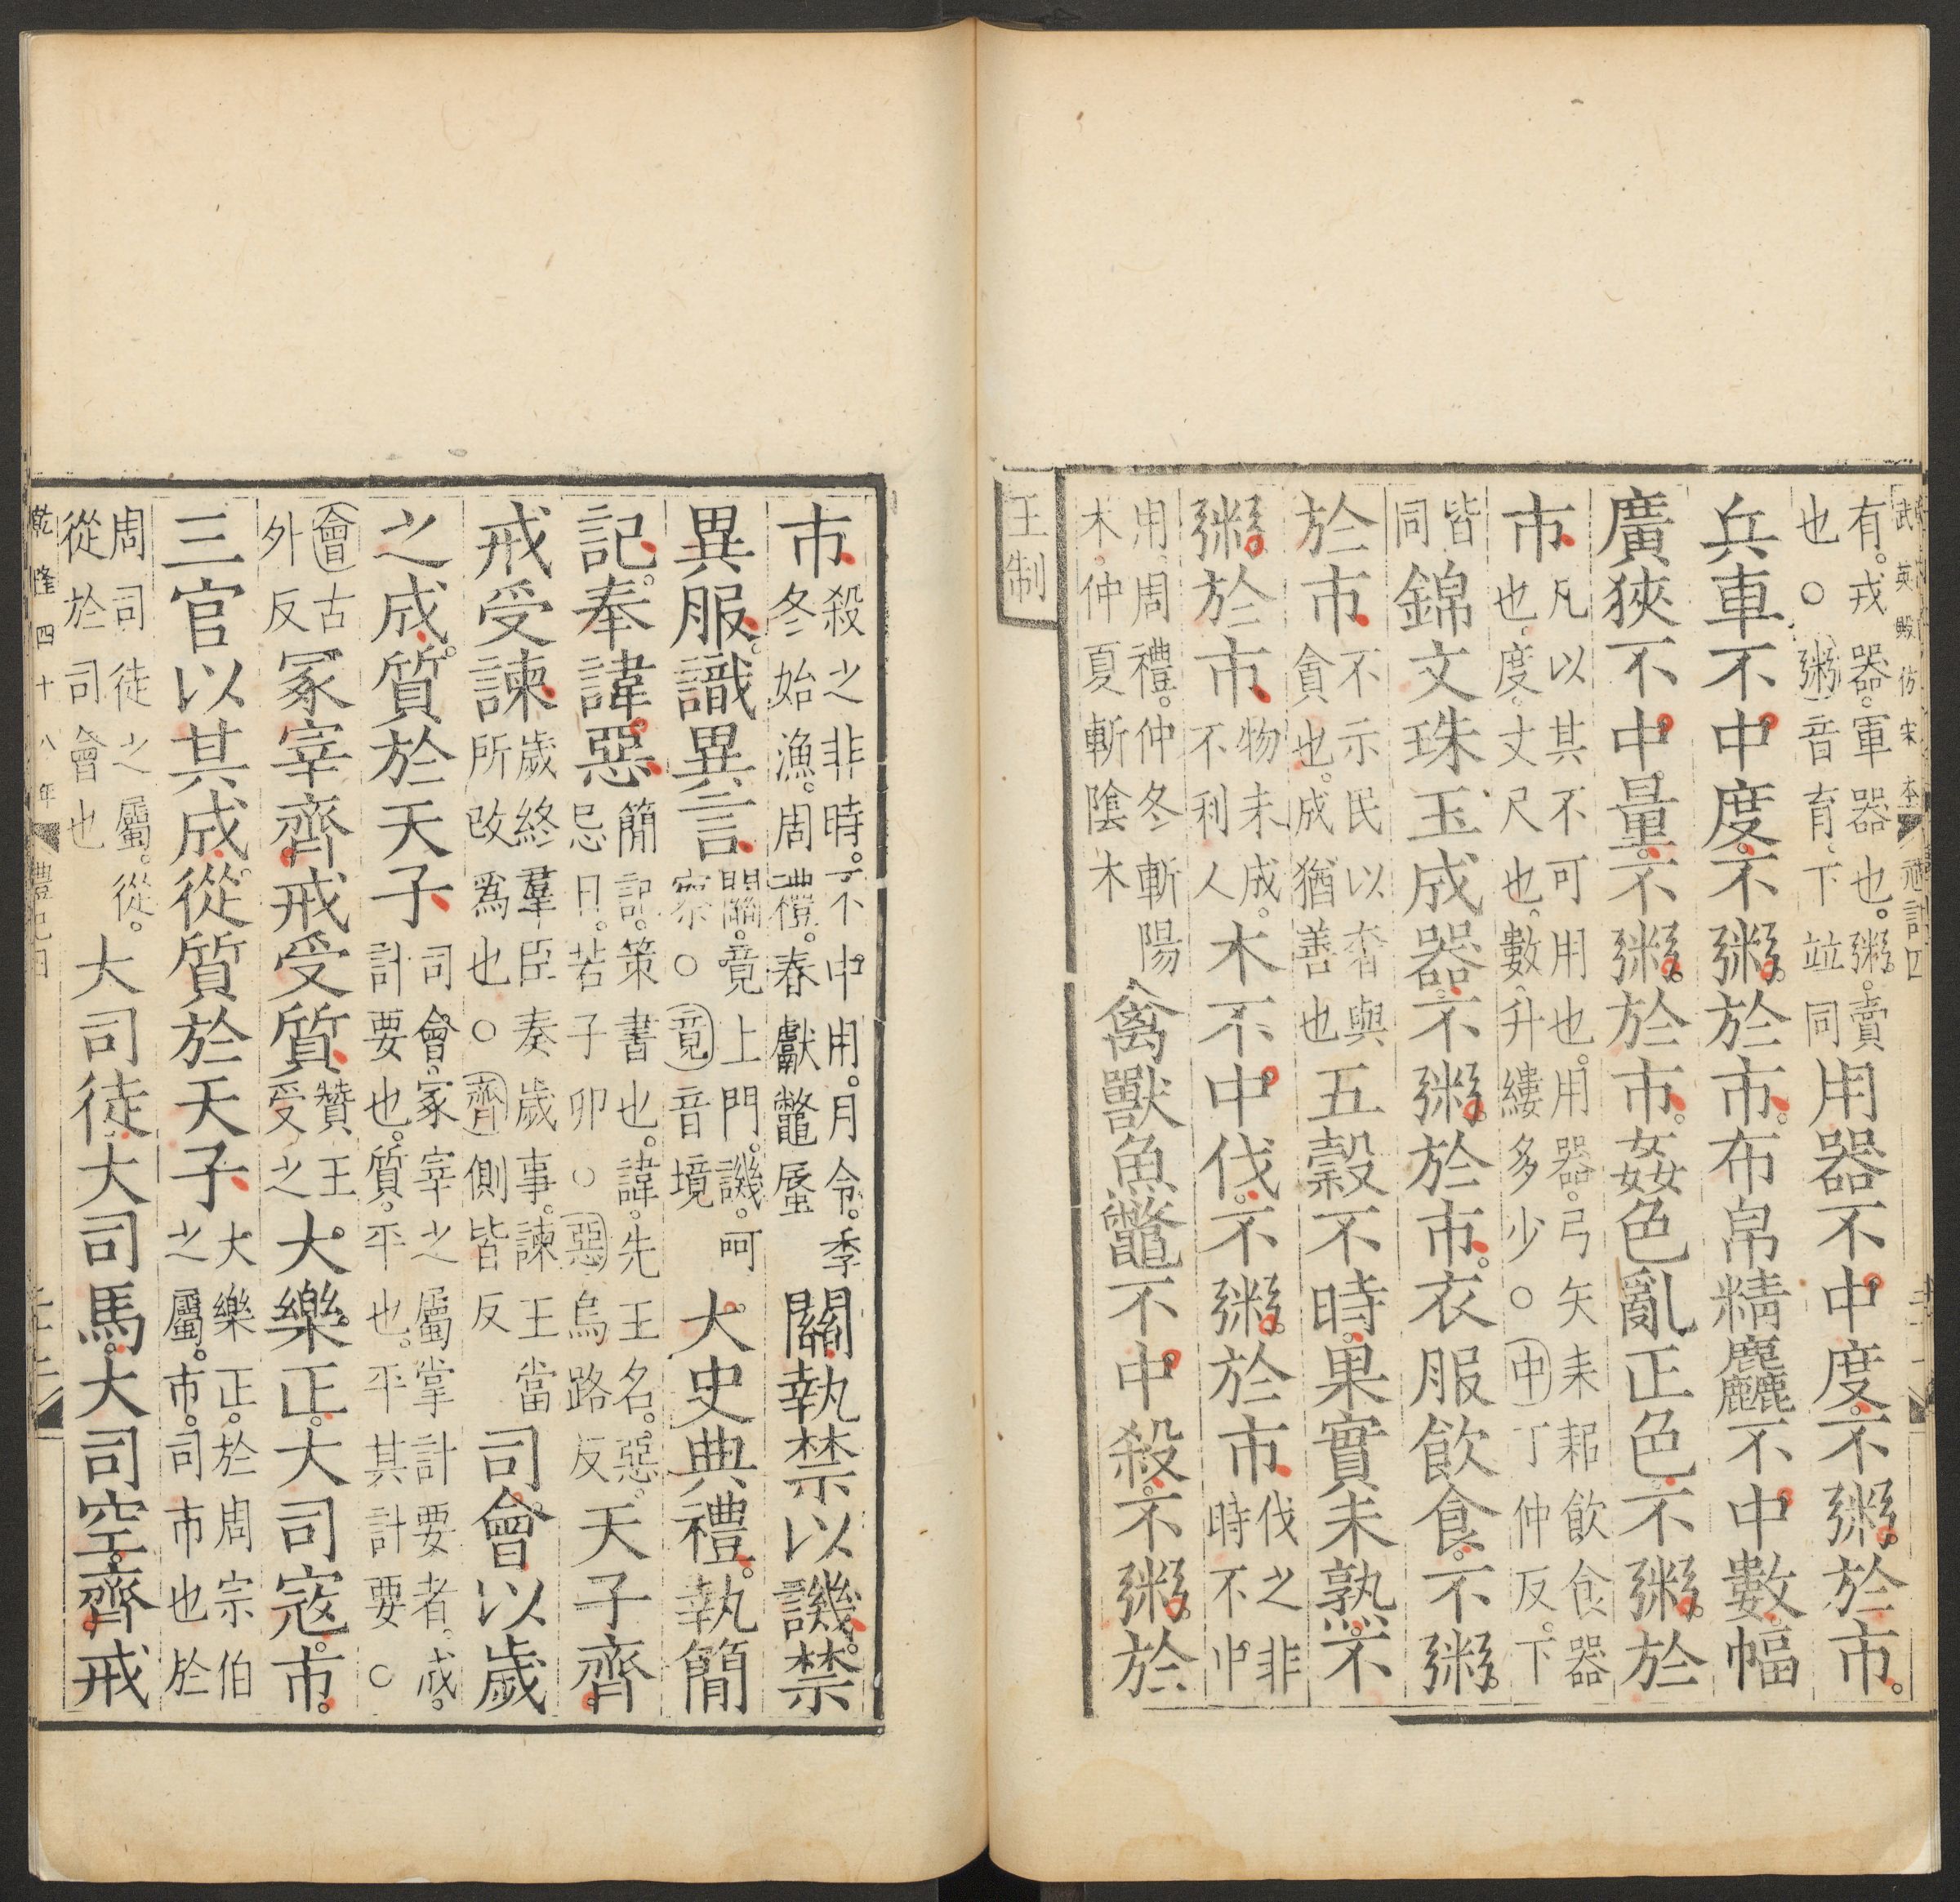 武英殿仿宋本 禮記四
有。戎器。軍器也。粥。賣
也○粥音育下竝同
用器不中度。不粥。於市。
兵車不中度。不粥。於市。布帛精麤不中數幅
廣狹不中量。不粥。於市。姦色亂正色。不粥。於
市
凡以其不可用也。用器。弓矢耒耜飲食器
也。度。丈尺也。數。升縷多少○中丁仲反。下
皆
同
錦文珠玉成器。不粥。於市。衣服飲食。不粥。
於市
不示民以奢與
貪也。成猶善也
五穀不時。果實未熟。不
粥。於市
物未成。
不利人
木不中伐。不粥。於市
伐之非
時不中
用。周禮。仲冬斬陽
木。仲夏斬陰木
禽獸魚鼈不中殺。不粥。於
王制
市
殺之非時。不中用。月令。季
冬始漁。周禮。春獻鼈蜃
關執禁以譏。禁
異服。識異言
關。竟上門。譏。呵
察○竟音境
大史典禮。執簡
記。奉諱惡
簡記。策書也。諱。先王名。惡。
忌日。若子卯○惡烏路反
天子齊
戒受諫
歲終羣臣奏歲事。諫王當
所改爲也○齊側皆反
司會以歲
之成。質於天子
司會。冢宰之屬掌計要者。成。
計要也。質。平也。平其計要○
會古
外反
冢宰齊戒受質
贊王
受之
大樂正。大司寇。市。
三官以其成。從質於天子
大樂正。於周宗伯
之屬。市。司市也於
周司徒之屬。從。
從於司會也
大司徒大司馬。大司空。齊戒
乾隆四十八年 禮記四